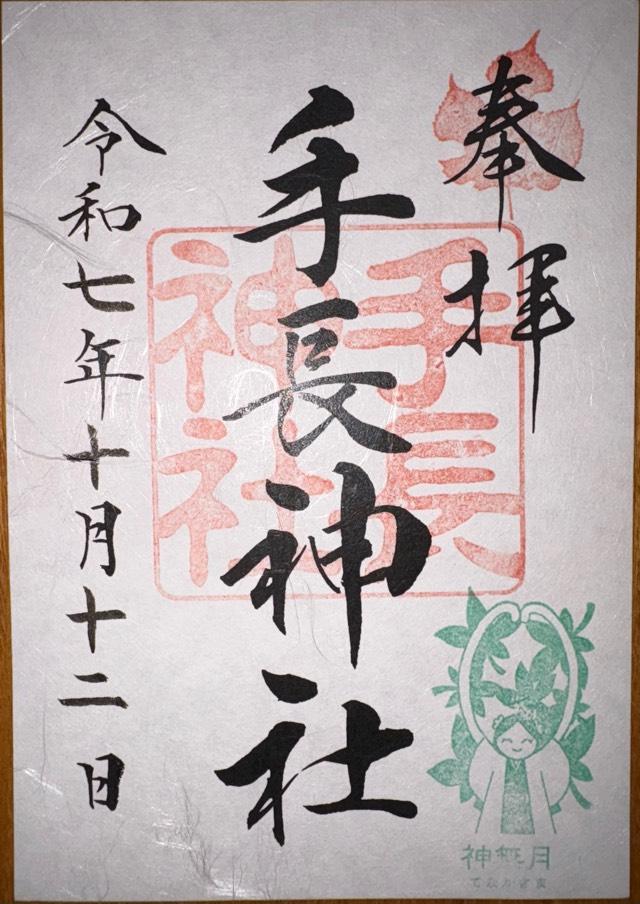 奉拝
手長神社
手長
神社
令和七年十月十二日
神無月